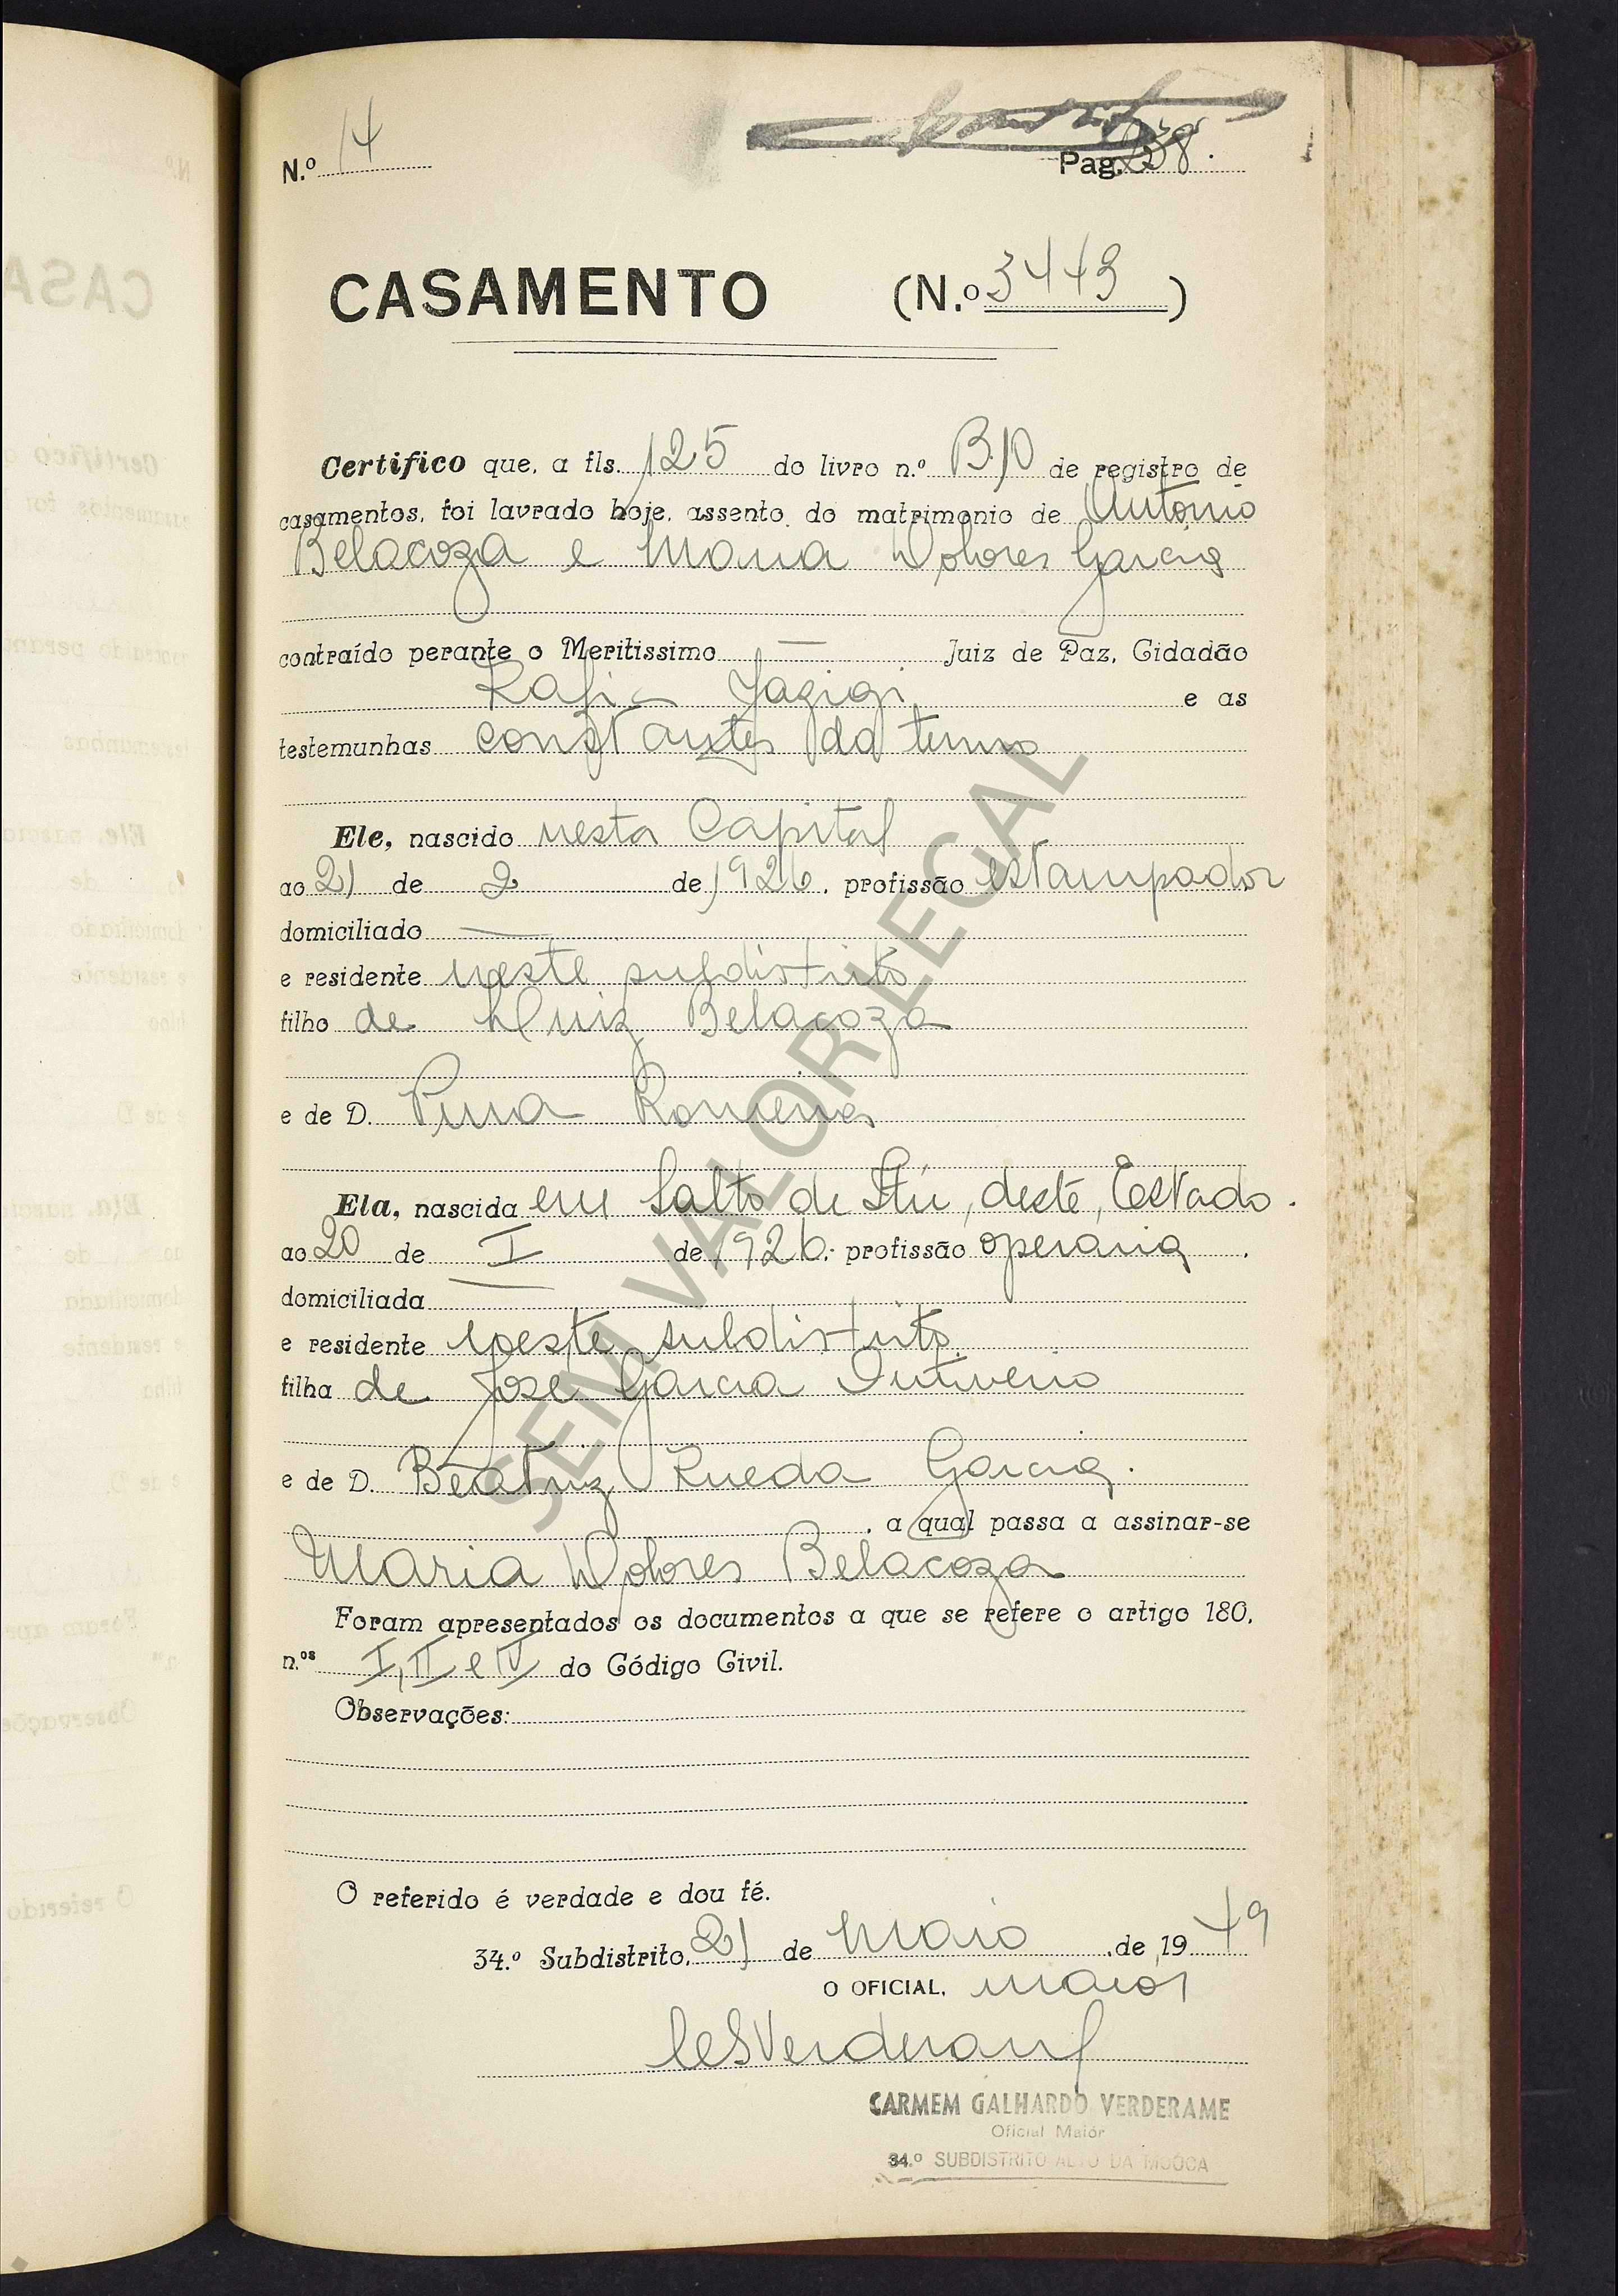 N.º 14
Pag. 238.
CASAMENTO (N.º 3449)
Certifico que, a fls. 125 do livro n.º B.10 de registro de
casamentos, foi lavrado hoje, assento do matrimonio de Antonio
Belacoza e Maria Dolores Garcia
contraído perante o Meritissimo — Juiz de Paz, Cidadão
Rafic Jazigi e as
testemunhas constantes do termo
Ele, nascido nesta Capital
ao 21 de 2 de 1926, profissão estampador
domiciliado —
e residente neste subdistrito
filho de Luiz Belacoza
e de D. Romena
Ela, nascida em Salto de Itú, deste, Estado.
ao 20 de I de 1926, profissão operaria
domiciliada —
e residente neste subdistrito
filha de José Garcia
e de D. Beatriz Rueda Garcia.
, a qual passa a assinar-se
Maria Dolores Belacoza
Foram apresentados os documentos a que se refere o artigo 180,
n.os I, II e IV do Código Civil.
Observações:
O referido é verdade e dou fé.
34.º Subdistrito, 21 de Maio de 1949
O OFICIAL, maior
CGVerderame
CARMEM GALHARDO VERDERAME
Oficial Maiór
34.º SUBDISTRITO ALTO DA MOÓCA
SEM VALOR LEGAL